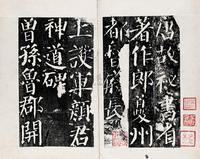 唐故秘書省
著作郎夔州
都督府長史
上護軍顏君
神道碑
曾孫魯郡開